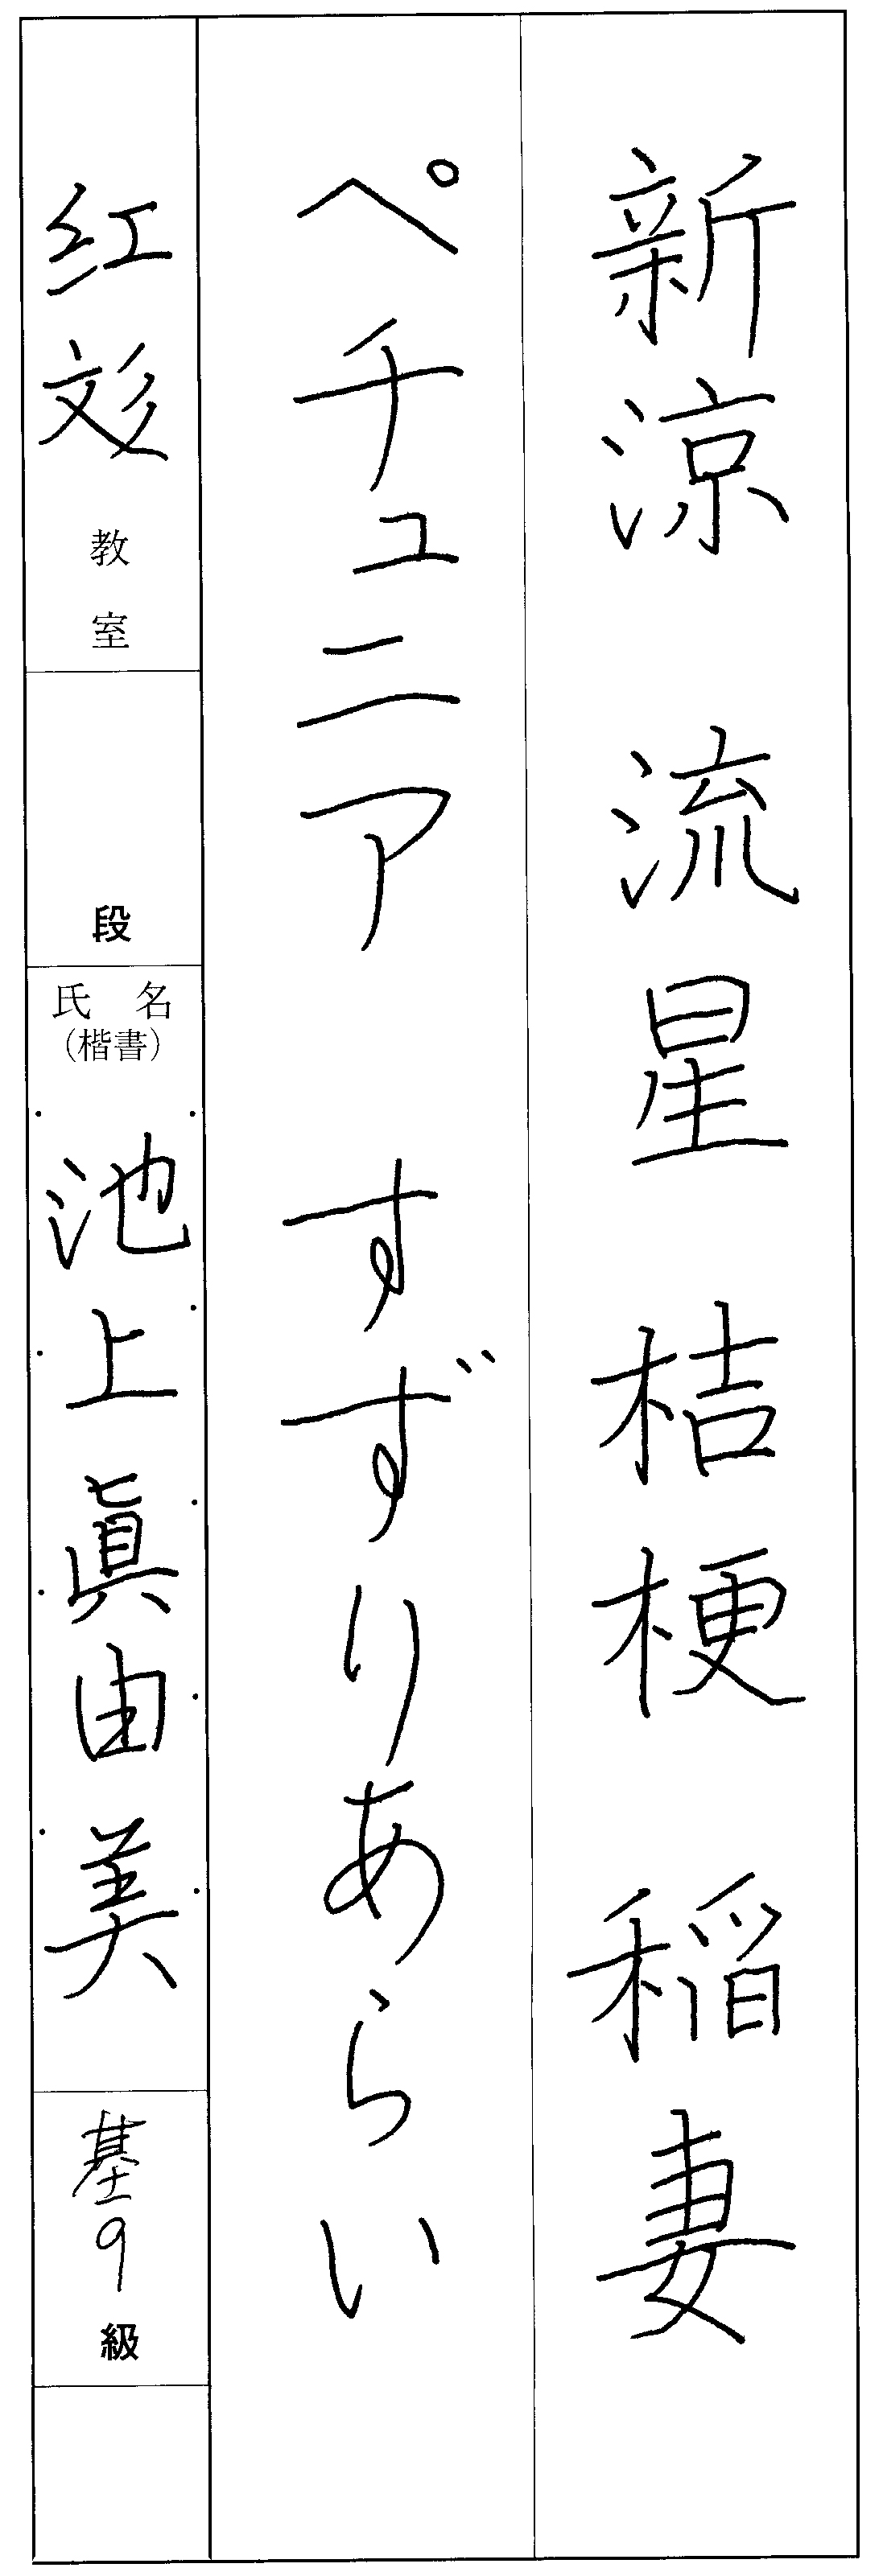 新涼 流星 桔梗 稲妻
ペチュニア すずりあらい
紅彣教室
段
氏名
(楷書)
池上眞由美
基9級